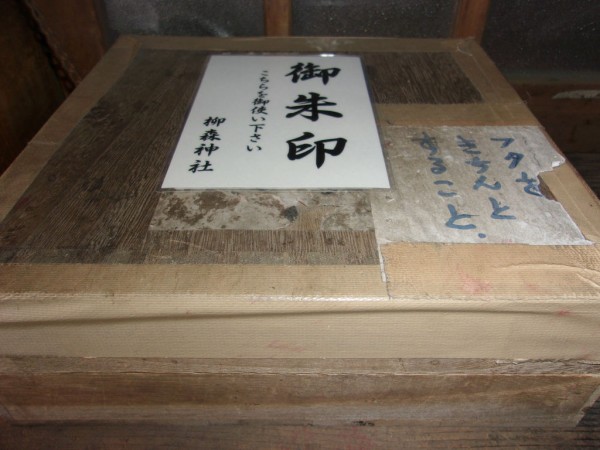 御朱印
こちらを御使い下さい
柳森神社
フタを
きちんと
すること.